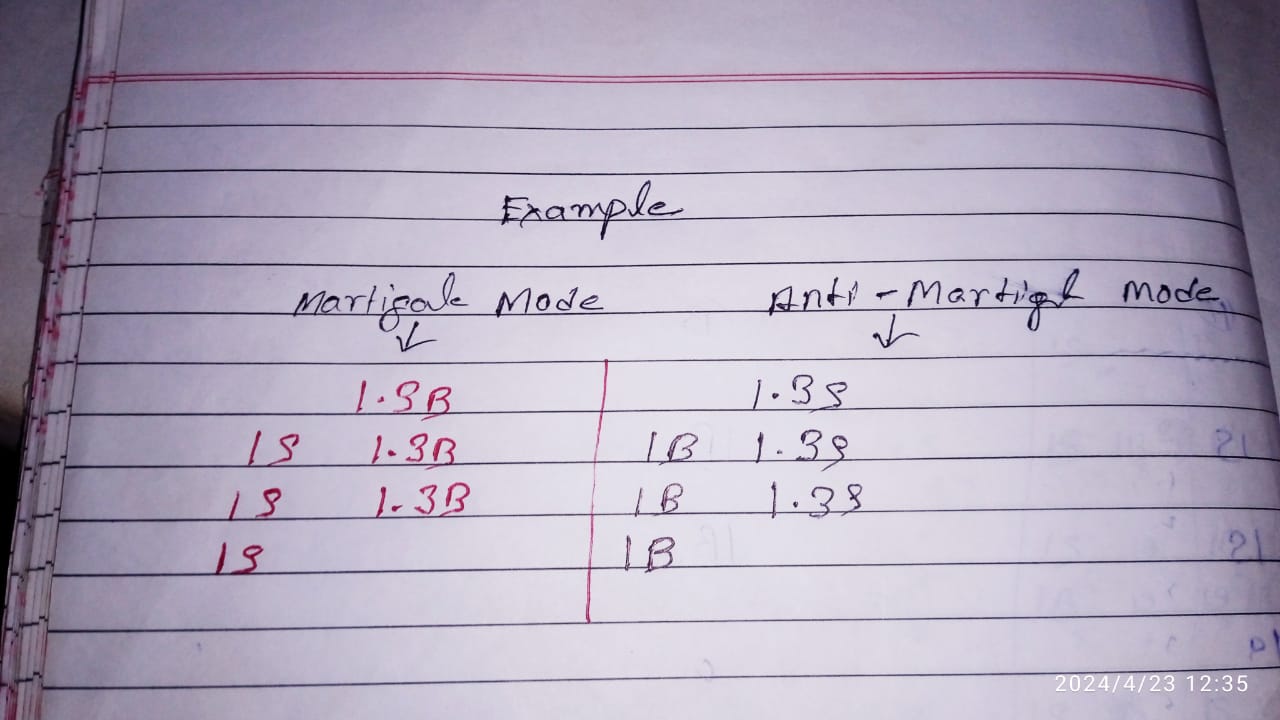 Example
Martigale Mode Anti-Martigl Mode
1.3B 1.3S
1S 1.3B 1B 1.3S
1S 1.3B 1B 1.3S
1S 1B
2024/4/23 12:35